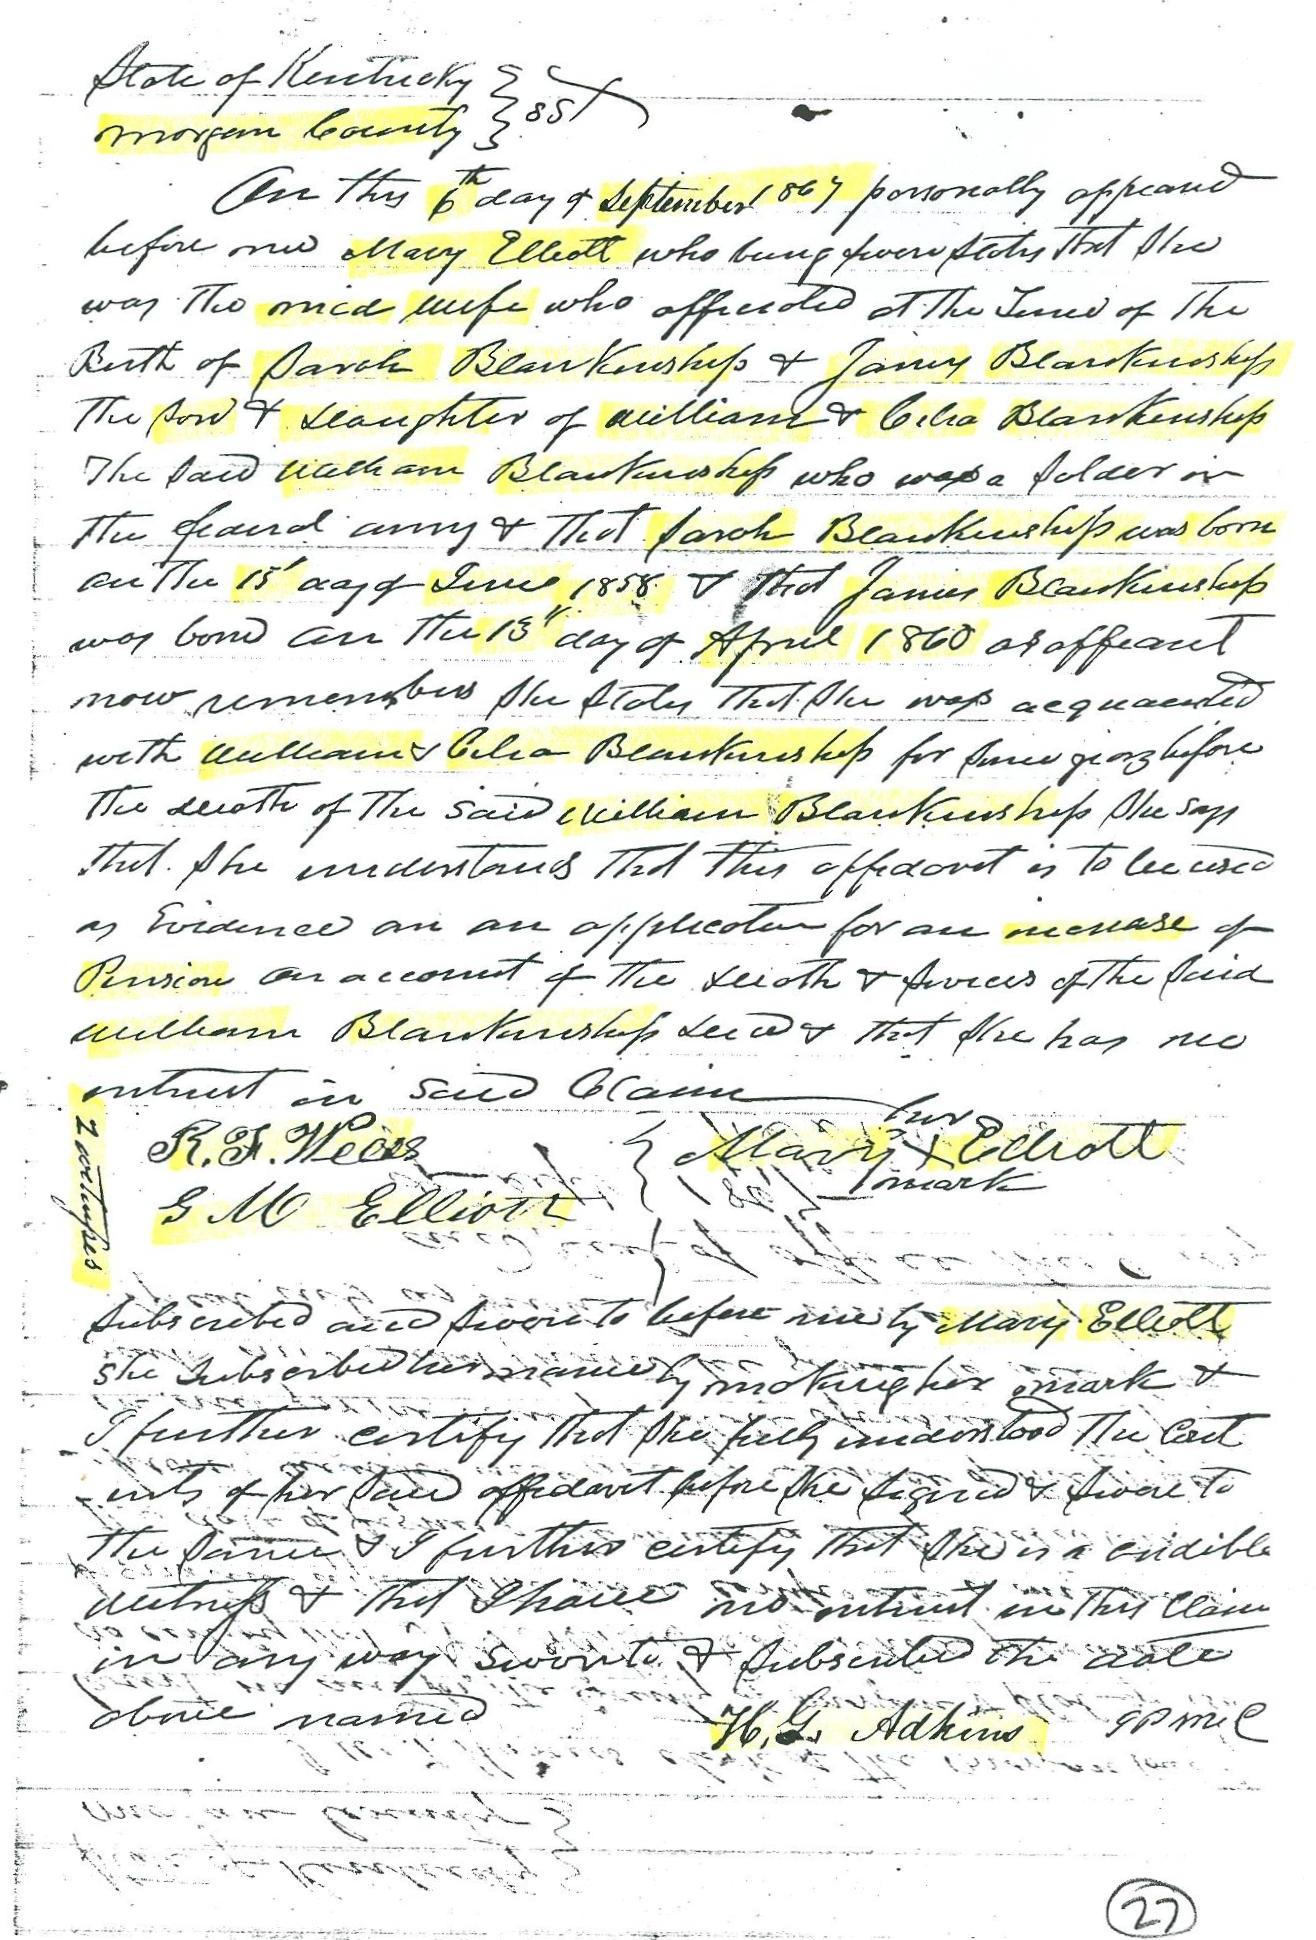 State of Kentucky
Morgan County } SS
On this 6th day of September 1867 personally appeared
before me Mary Elliott who being sworn states that she
was the mid wife who officiated at the time of the
Birth of Sarah Blankenship & James Blankenship
the son & daughter of William & Celia Blankenship
The said William Blankenship who was a solder in
the federal army & that Sarah Blankenship was born
on the 15" day of June 1858 & that James Blankenship
was born on the 13" day of April 1860 as affeant
now remembers she states that she was acquainted
with William & Celia Blankenship for some years before
the death of the said William Blankenship she says
that she understands that this affidavit is to be used
as Evidence on an application for an increase of
Pension on account of the death & services of the said
William Blankenship decd & that she has no
intrust in said Claim
2 witnesses
R. F. Weiss
G M Elliott
her
Mary X Elliott
mark
Subscribed and sworn to before me by Mary Elliott
she subscribed her name by making her mark &
I further certify that she fully understood the Cont
ents of her said affidavit before she signed & swore to
the same & I further certify that she is a credible
witness & that I have no intrust in this Claim
in any way sworn to & subscribed the date
above named
H. G. Adkins JPMC
27